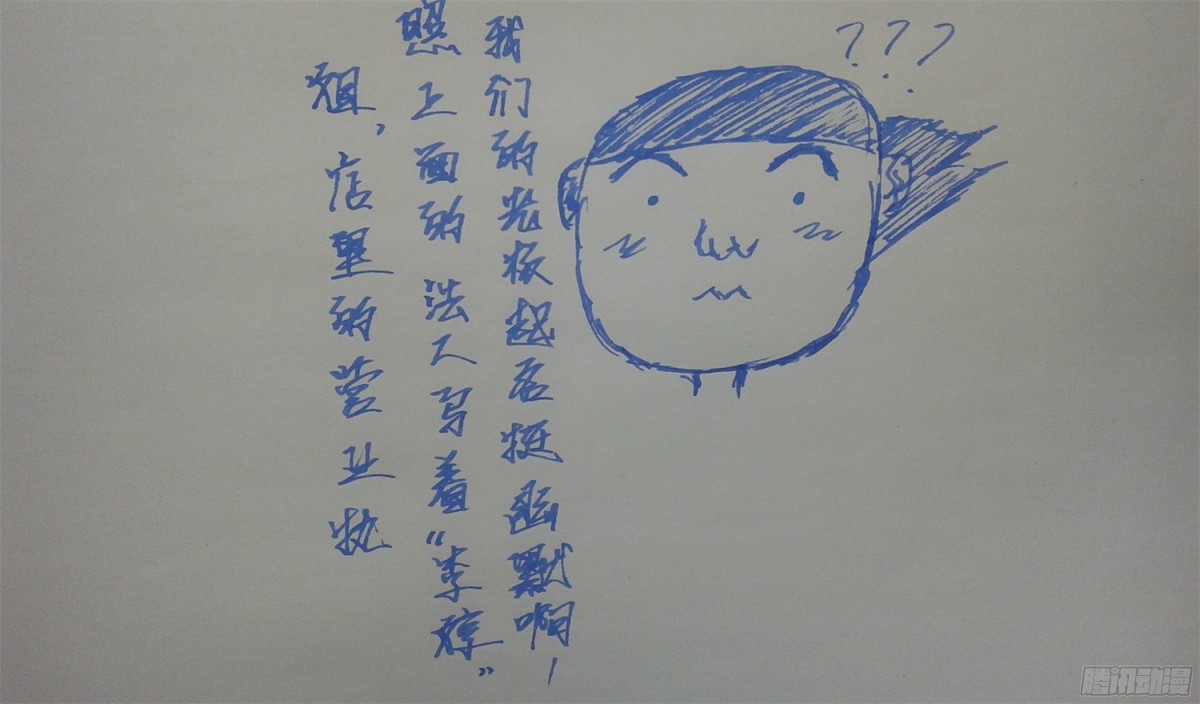 姐，店里的营业执
照上面的法人写着“李醇”
我们的老板起名挺幽默啊！
???
腾讯动漫